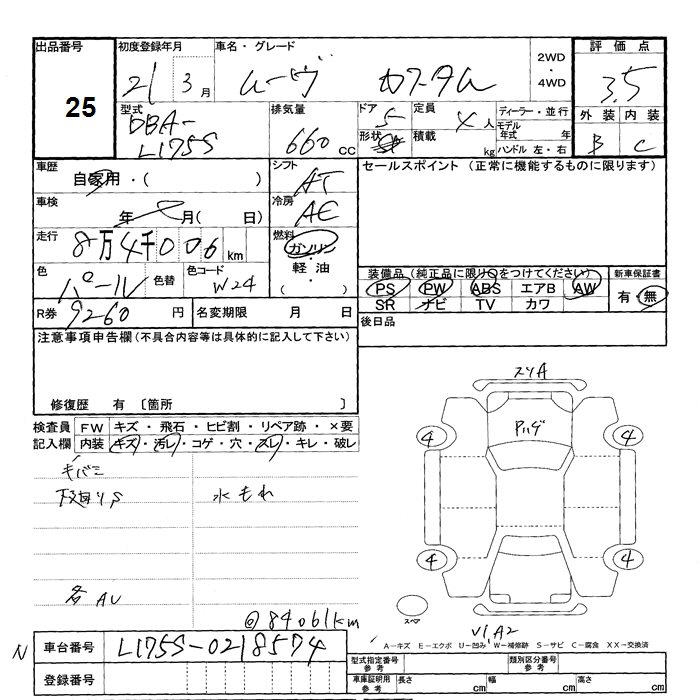 出品番号
25
初度登録年月
21 3月
車名・グレード
ムーヴ カスタム
2WD
・
4WD
評価点
3.5
型式
DBA-
L175S
排気量
660cc
ドア
5
形状
定員
4人
積載
kg
ディーラー・並行
モデル
年式 年
ハンドル 左・右
外装 内装
B C
車歴
自家用・( )
シフト
AT
セールスポイント (正常に機能するものに限ります)
車検
年 月( 日)
冷房
AC
走行
8万4千006km
燃料
ガソリン
・
軽・油
( ・ )
色
パール
色替
色コード
W24
装備品(純正品に限り○をつけてください)
PS PW ABS エアB AW
SR ナビ TV カワ
新車保証書
有・無
R券
9260円
名変期限 月 日
後日品
注意事項申告欄(不具合内容等は具体的に記入して下さい)
修復歴 有 [箇所 ]
検査員
記入欄
FW キズ・飛石・ヒビ割・リペア跡・×要
内装 キズ・汚レ・コゲ・穴・スレ・キレ・破レ
キバミ
下廻りS 水もれ
各AU
@84061km
スリA
Aハゲ
4 4
4 4
スペア
V1,A2
A-キズ E-エクボ U-凹み W-補修跡 S-サビ C-腐食 XX-交換済
N
車台番号
L175S-0218574
登録番号
型式指定番号
参考
類別区分番号
参考
車庫証明用
参考
長さ cm 幅 cm 高さ cm